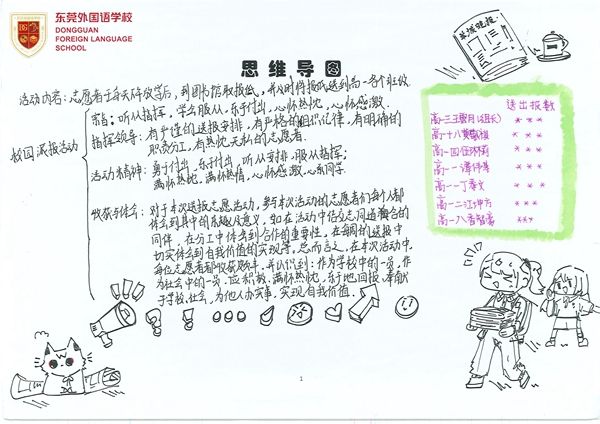 东莞外国语学校
DONGGUAN
FOREIGN LANGUAGE
SCHOOL
思维导图
活动内容:志愿者在每天放学后,到图书馆取报纸,并及时将报纸送到高一各个班级
校园派报活动
宗旨:听从指挥,学会服从,乐于付出,心怀热忱,心怀感激.
指挥领导:有严谨的送报安排,有严格的组织纪律,有明确的
职责分工,有热忱无私的志愿者.
活动者精神:勇于付出,乐于付出,听从安排,服从指挥;
满怀热忱,满怀热情,心怀感激,心系同学.
收获与体会:对于本次送报志愿活动,参与本次活动的志愿者们每个人都
体会到其中的乐趣及意义,如在活动中结交志同道合的
同伴,在分工中体会到合作的重要性,在每周的送报中
切实体会到自我价值的实现等,总而言之,在本次活动中,
每位志愿者都收获颇丰,并认识到:作为学校中的一员,作
为社会中的一员,应积极,满怀热忱,乐于地回报,奉献
于学校,社会,为他人办实事,实现自我价值.
晚报
送出报数
高一三 (组长) ***
高一十八 ***
高一四 ***
高一一 ***
高一一 ***
高一二 ***
高一八 ***
1